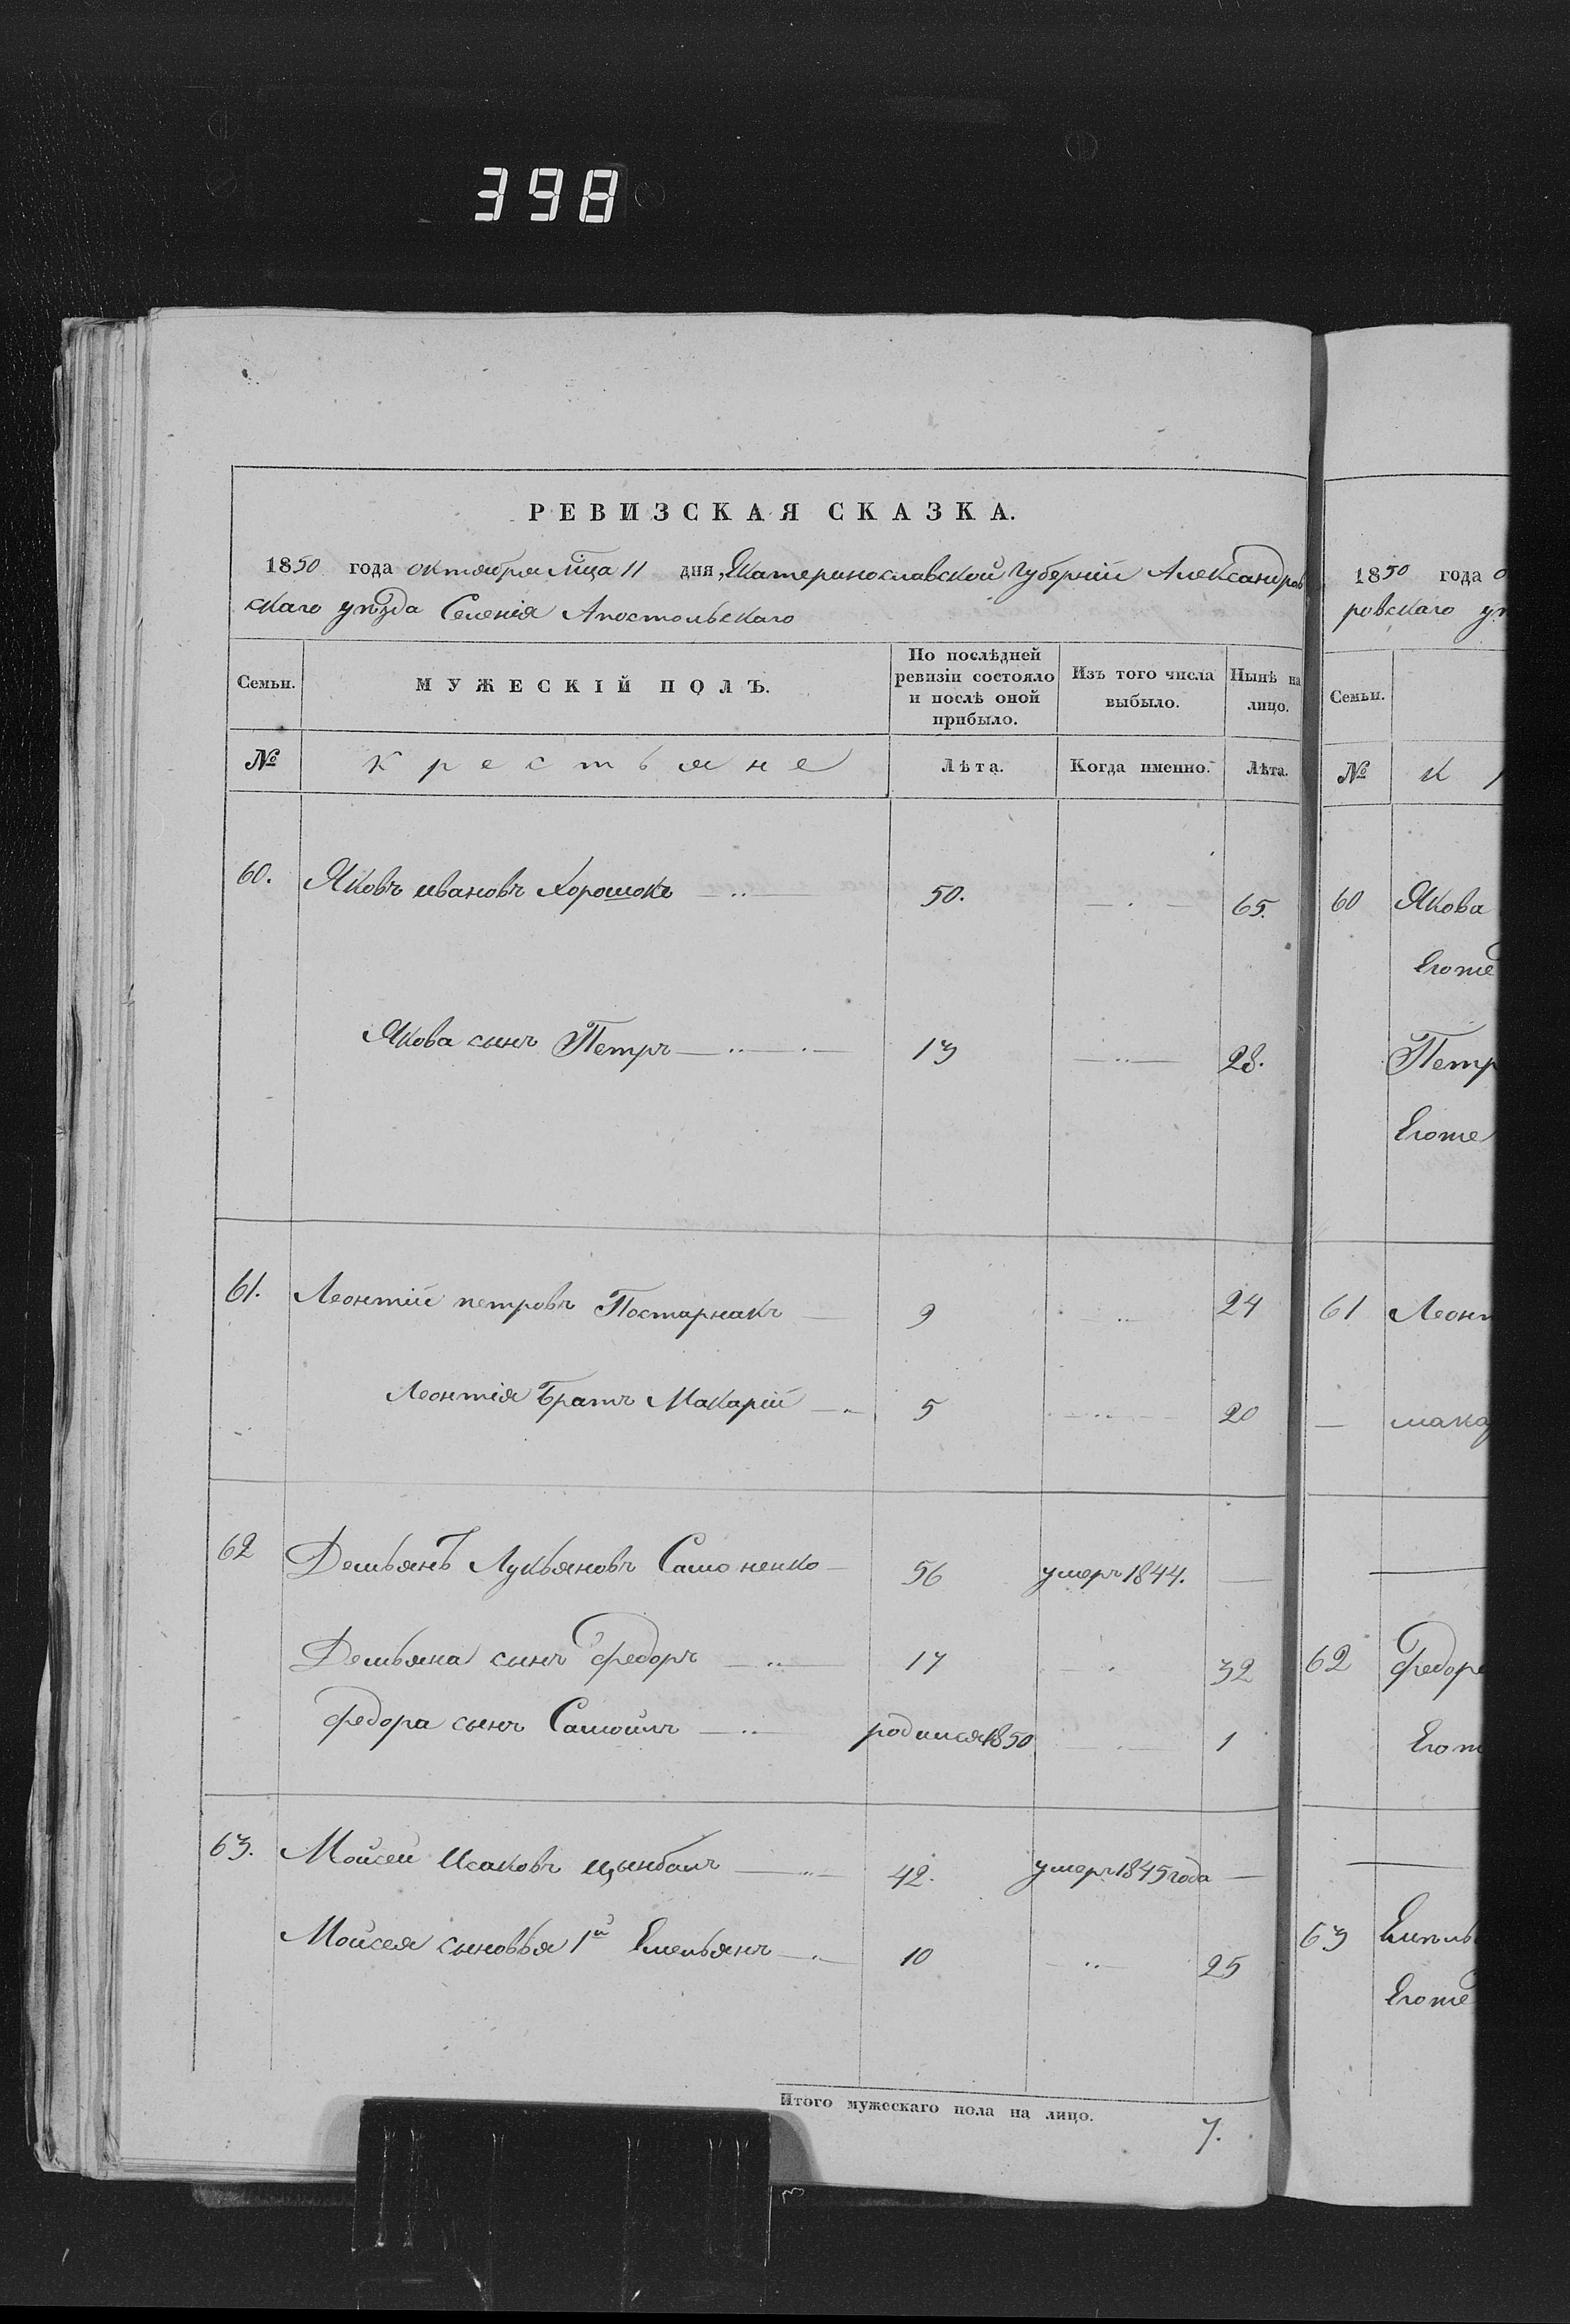 398
РЕВИЗСКАЯ СКАЗКА.
1850 года октября мца 11 дня, Екатеринославской Губерніи Александров
скаго уѣзда Селенія Апостольскаго
Семьи. МУЖЕСКІЙ ПОЛЪ. По послѣдней ревизіи состояло и послѣ оной прибыло. Изъ того числа выбыло. Нынѣ на лицо.
№ крестьяне Лѣта. Когда именно. Лѣта.
60. Яковъ ивановъ Хорошокъ 50. 65.
Якова сынъ Петръ 13 28.
61. Леонтій петровъ Постарнакъ 9 24
Леонтія Братъ Макарій 5 20
62 Демьянъ Лукьяновъ Самоненко 56 умеръ 1844.
Демьяна сынъ Федоръ 17 32
Федора сынъ Самойлъ родился 1850 1
63. Мойсей Исаковъ цымбалъ 42. умеръ 1845 года
Мойсея сыновья 1й Емельянъ 10 25
Итого мужескаго пола на лицо. 7.
1850 года о
ровскаго уѣ
Семьи.
№ К
60 Якова
Егоже
Петр
Егоже
61 Леонт
мака
62 Федор
Егож
63 Емель
Егоже